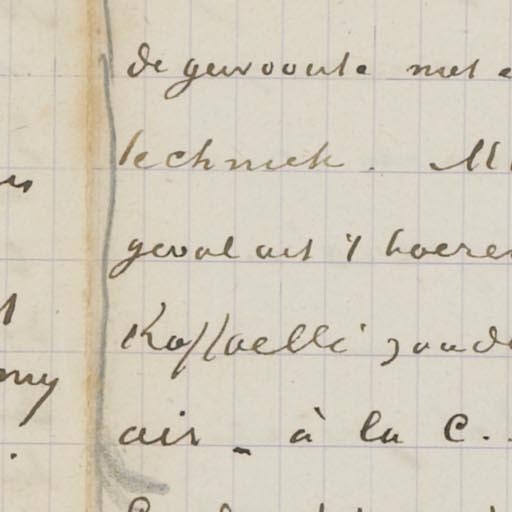 de gewoonte met
techniek. M
geval uit 't boeren
Raffaelli zoude
air – à la C.
my